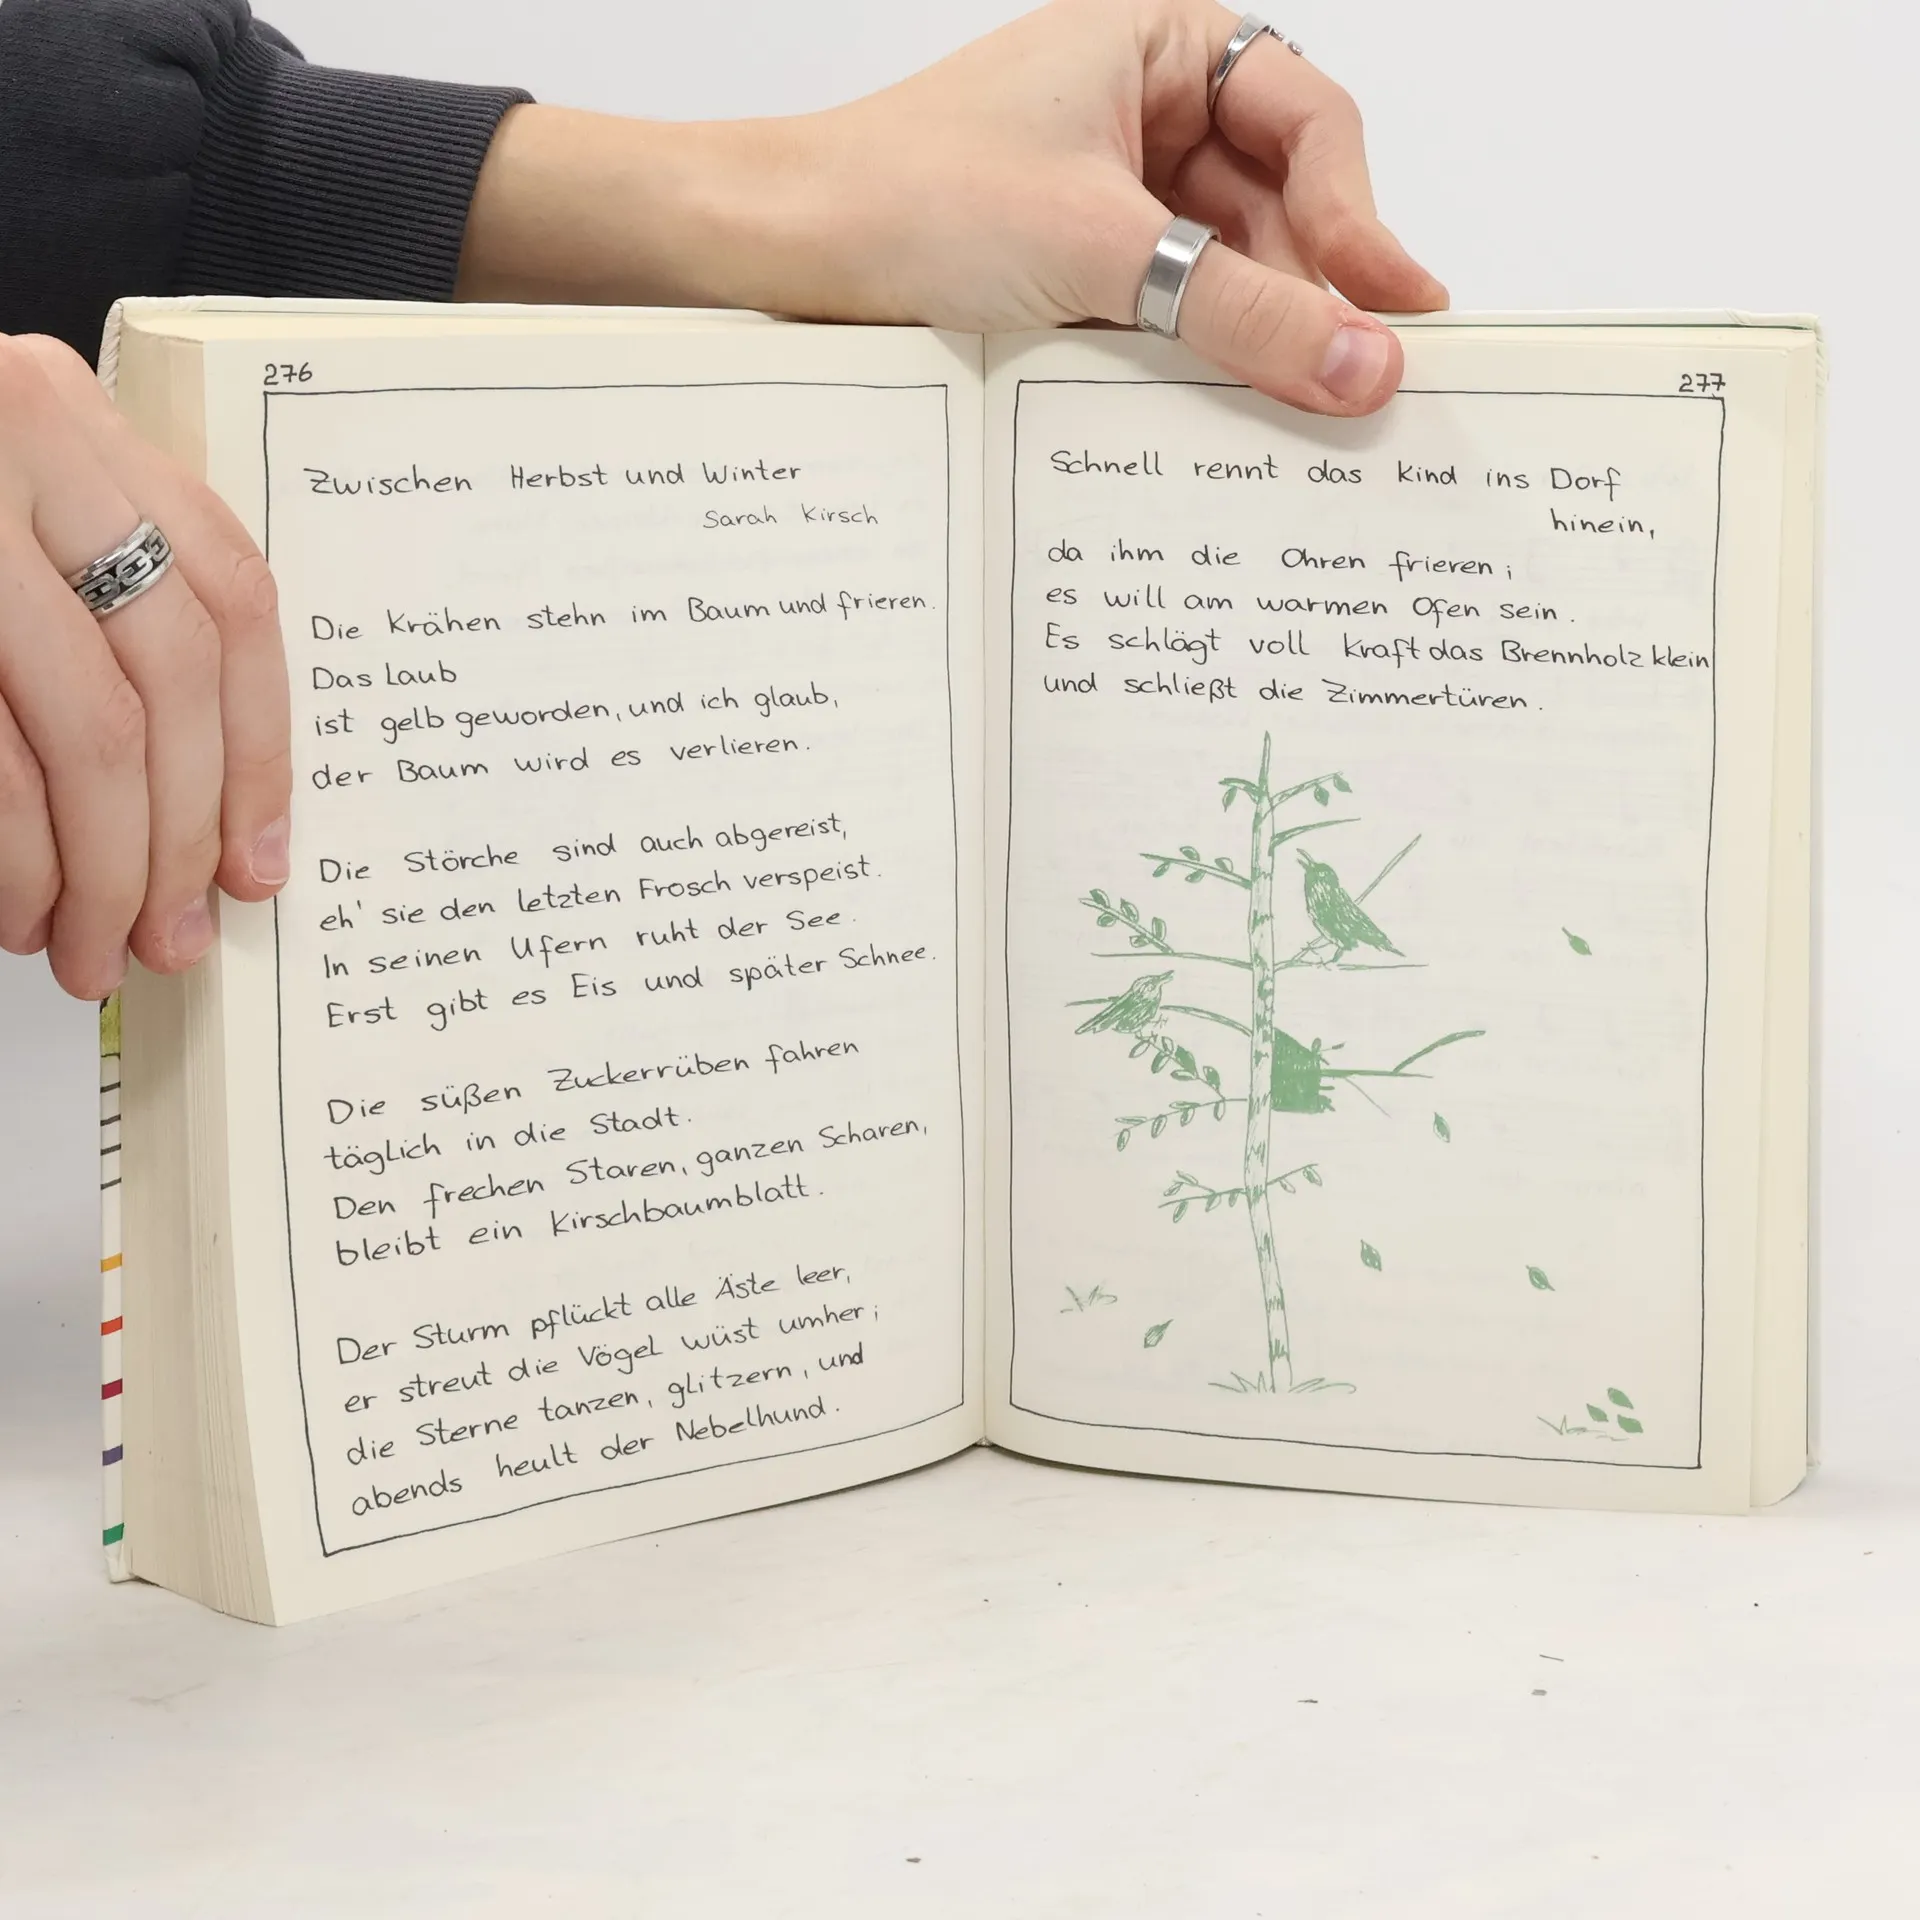 276
Zwischen Herbst und Winter
Sarah Kirsch
Die Krähen stehn im Baum und frieren.
Das Laub
ist gelb geworden, und ich glaub,
der Baum wird es verlieren.
Die Störche sind auch abgereist,
eh' sie den letzten Frosch verspeist.
In seinen Ufern ruht der See.
Erst gibt es Eis und später Schnee.
Die süßen Zuckerrüben fahren
täglich in die Stadt.
Den frechen Staren, ganzen Scharen,
bleibt ein Kirschbaumblatt.
Der Sturm pflückt alle Äste leer,
er streut die Vögel wüst umher;
die Sterne tanzen, glitzern, und
abends heult der Nebelhund.
277
Schnell rennt das Kind ins Dorf
hinein,
da ihm die Ohren frieren;
es will am warmen Ofen sein.
Es schlägt voll Kraft das Brennholz klein
und schließt die Zimmertüren.